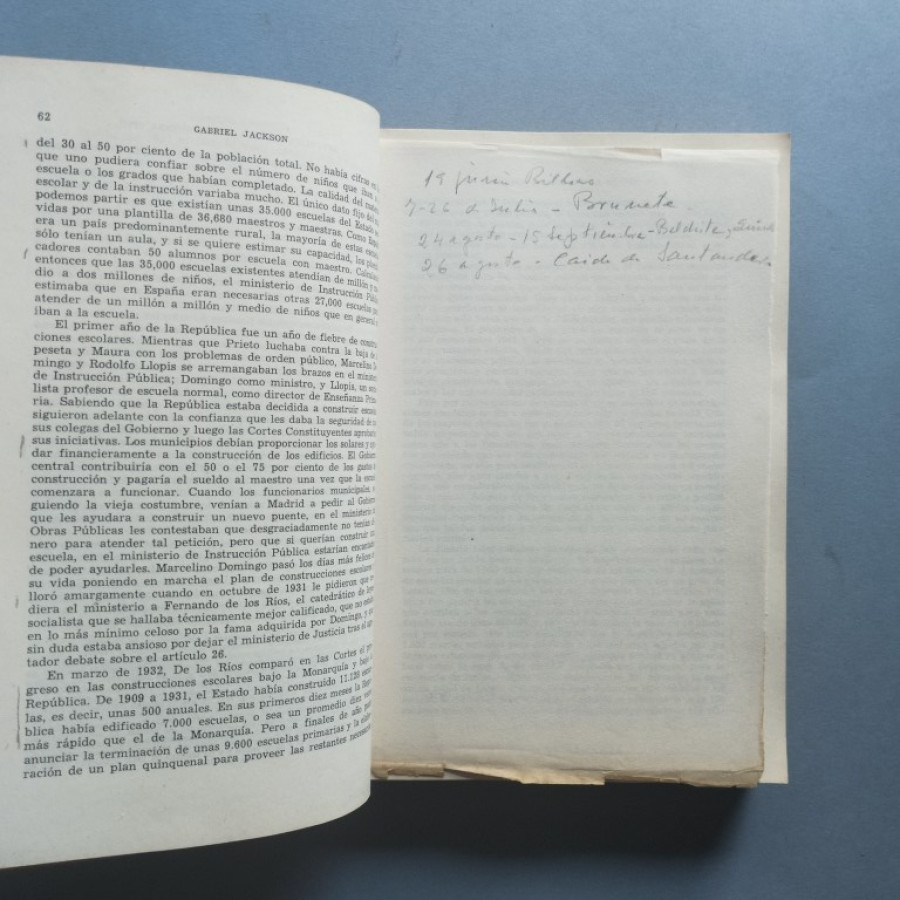 62
GABRIEL JACKSON
del 30 al 50 por ciento de la población total. No había cifras en
que uno pudiera confiar sobre el número de niños que iban a
escuela o los grados que habían completado. La calidad del
escolar y de la instrucción variaba mucho. El único dato fijo del
podemos partir es que existían unas 35.000 escuelas del Estado
vidas por una plantilla de 36,680 maestros y maestras. Como
era un país predominantemente rural, la mayoría de estas
sólo tenían un aula, y si se quiere estimar su capacidad, los
cadores contaban 50 alumnos por escuela con maestro.
entonces que las 35,000 escuelas existentes atendían de millón y
dio a dos millones de niños, el ministerio de Instrucción
estimaba que en España eran necesarias otras 27,000 escuelas
atender de un millón a millón y medio de niños que en general
iban a la escuela.
El primer año de la República fue un año de fiebre de
ciones escolares. Mientras que Prieto luchaba contra la baja de
peseta y Maura con los problemas de orden público, Marcelino
mingo y Rodolfo Llopis se arremangaban los brazos en el
de Instrucción Pública; Domingo como ministro, y Llopis, un
lista profesor de escuela normal, como director de Enseñanza
ria. Sabiendo que la República estaba decidida a construir
siguieron adelante con la confianza que les daba la seguridad de
sus colegas del Gobierno y luego las Cortes Constituyentes
sus iniciativas. Los municipios debían proporcionar los solares y
dar financieramente a la construcción de los edificios. El
central contribuiría con el 50 o el 75 por ciento de los gastos
construcción y pagaría el sueldo al maestro una vez que la
comenzara a funcionar. Cuando los funcionarios municipales,
guiendo la vieja costumbre, venían a Madrid a pedir al
que les ayudara a construir un nuevo puente, en el ministerio
Obras Públicas les contestaban que desgraciadamente no tenían
nero para atender tal petición, pero que si querían construir
escuela, en el ministerio de Instrucción Pública estarían
de poder ayudarles. Marcelino Domingo pasó los días más felices
su vida poniendo en marcha el plan de construcciones
lloró amargamente cuando en octubre de 1931 le pidieron que
diera el ministerio a Fernando de los Ríos, el catedrático de
socialista que se hallaba técnicamente mejor calificado, que no
en lo más mínimo celoso por la fama adquirida por Domingo, y
sin duda estaba ansioso por dejar el ministerio de Justicia tras el
tador debate sobre el artículo 26.
En marzo de 1932, De los Ríos comparó en las Cortes el
greso en las construcciones escolares bajo la Monarquía y
República. De 1909 a 1931, el Estado había construido 11.128
las, es decir, unas 500 anuales. En sus primeros diez meses la
blica había edificado 7.000 escuelas, o sea un promedio diez
más rápido que el de la Monarquía. Pero a finales de año
anunciar la terminación de unas 9.600 escuelas primarias y la
ración de un plan quinquenal para proveer las restantes
19 junio Bilbao
7-26 de Julio - Brunete
24 agosto - 15 septiembre - Belchite,
26 agosto - Caída de Santander